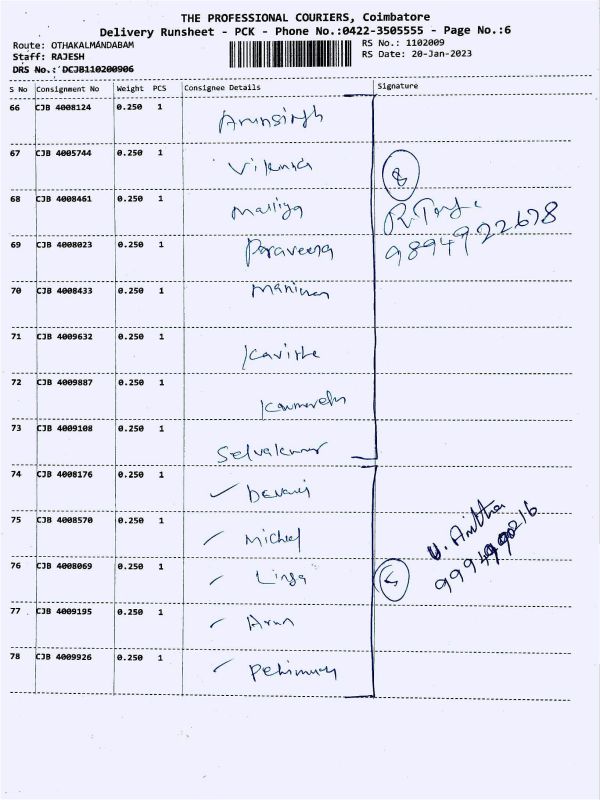 THE PROFESSIONAL COURIERS, Coimbatore
Delivery Runsheet - PCK - Phone No.:0422-3505555 - Page No.:6
Route: OTHAKALMANDABAM
RS No.: 1102009
Staff: RAJESH
RS Date: 20-Jan-2023
DRS No.: DCJB110200906
S No Consignment No Weight PCS Consignee Details Signature
66 CJB 4008124 0.250 1 Arunsingh
67 CJB 4005744 0.250 1
8
68 CJB 4008461 0.250 1
69 CJB 4008023 0.250 1 Paraveena
9894922678
70 CJB 4008433 0.250 1
71 CJB 4009632 0.250 1 Kavitha
72 CJB 4009887 0.250 1
73 CJB 4009108 0.250 1 Selvakumar
74 CJB 4008176 0.250 1
75 CJB 4008570 0.250 1 Michel
76 CJB 4008069 0.250 1 Linga
77 CJB 4009195 0.250 1 Arun
78 CJB 4009926 0.250 1